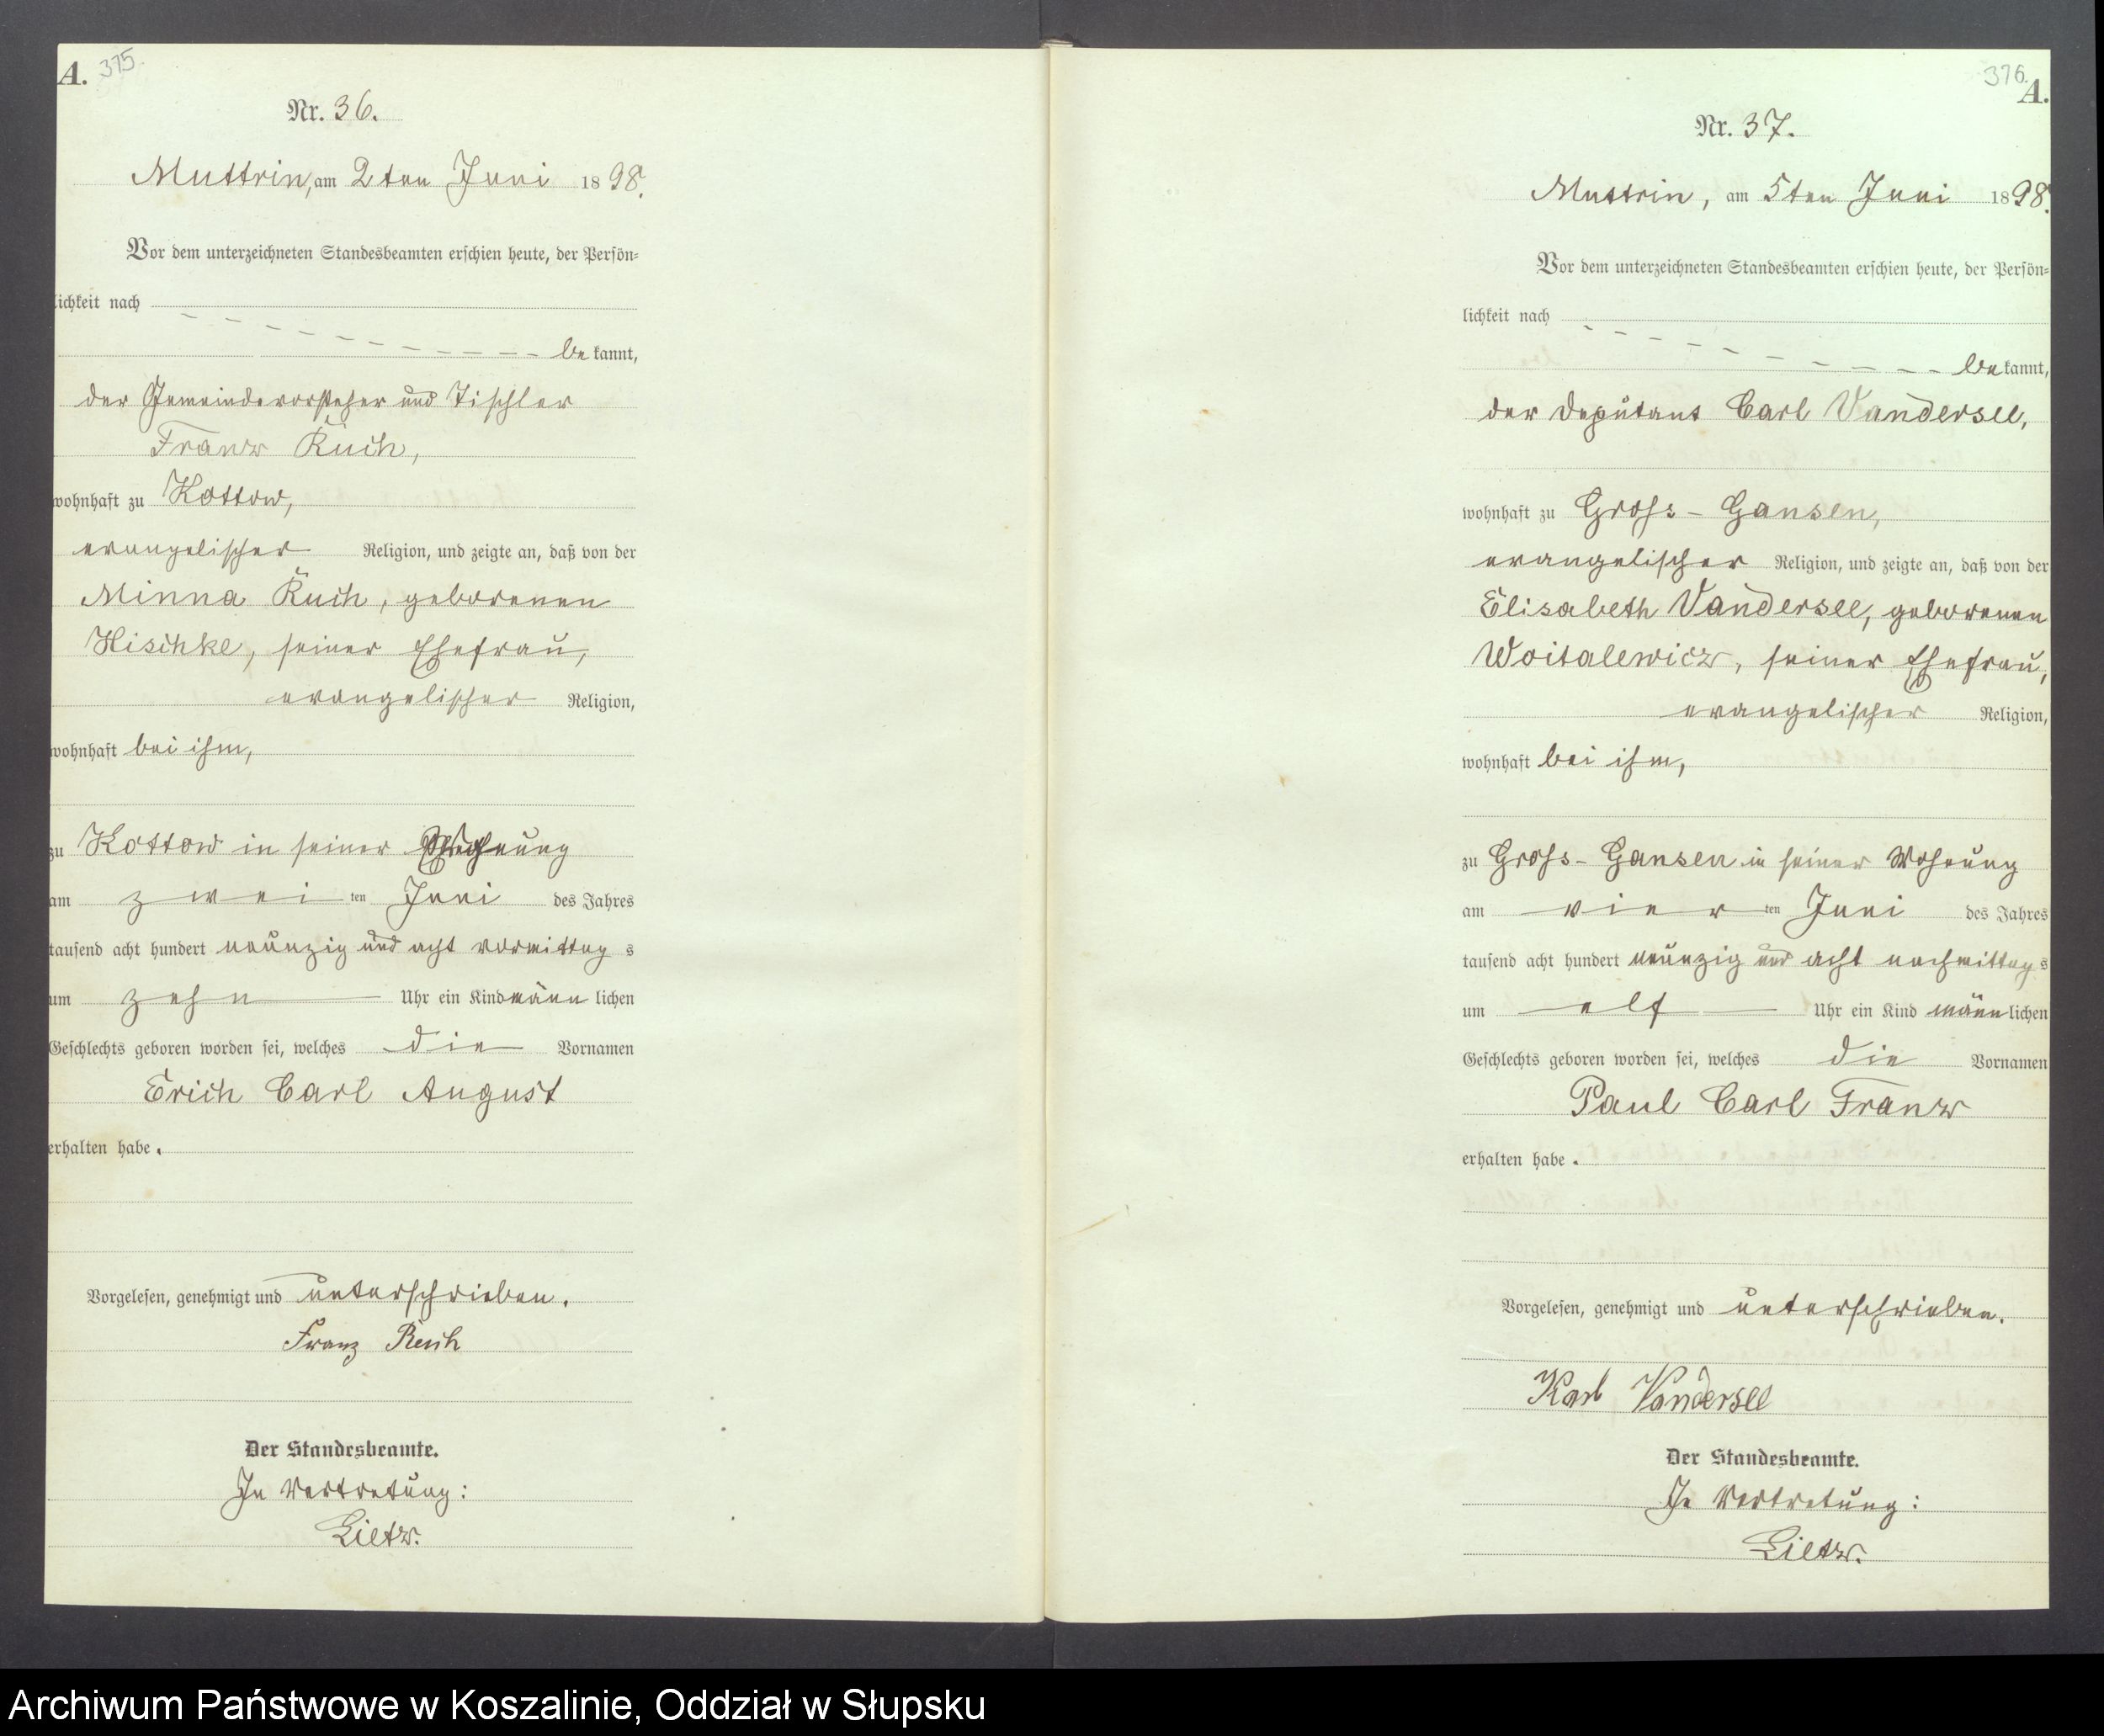 A. 375.
Nr. 36.
Muttrin, am 2ten Juni 1898.
Vor dem unterzeichneten Standesbeamten erschien heute, der Persön-
lichkeit nach
be kannt,
der Gemeindevorsteher und Tischler
Franz
wohnhaft zu Kottow,
evangelischer Religion, und zeigte an, daß von der
Minna geborenen
seiner Ehefrau,
evangelischer Religion,
wohnhaft bei ihm,
zu Kottow in seiner Wohnung
am zwei ten Juni des Jahres
tausend acht hundert neunzig und acht vormittag s
um zehn Uhr ein Kind männ lichen
Geschlechts geboren worden sei, welches die Vornamen
Erich Carl August
erhalten habe.
Vorgelesen, genehmigt und unterschrieben.
Franz
Der Standesbeamte.
In Vertretung:
Lietz.
376. A.
Nr. 37.
Muttrin, am 5ten Juni 1898.
Vor dem unterzeichneten Standesbeamten erschien heute, der Persön-
lichkeit nach
be kannt,
der Deputant Carl Vandersee,
wohnhaft zu Gross-Gansen,
evangelischer Religion, und zeigte an, daß von der
Elisabeth Vandersee, geborenen
Woitalewicz, seiner Ehefrau,
evangelischer Religion,
wohnhaft bei ihm,
zu Gross-Gansen in seiner Wohnung
am vier ten Juni des Jahres
tausend acht hundert neunzig und acht nachmittag s
um elf Uhr ein Kind männ lichen
Geschlechts geboren worden sei, welches die Vornamen
Paul Carl Franz
erhalten habe.
Vorgelesen, genehmigt und unterschrieben.
Karl Vandersee
Der Standesbeamte.
In Vertretung:
Lietz.
Archiwum Państwowe w Koszalinie, Oddział w Słupsku